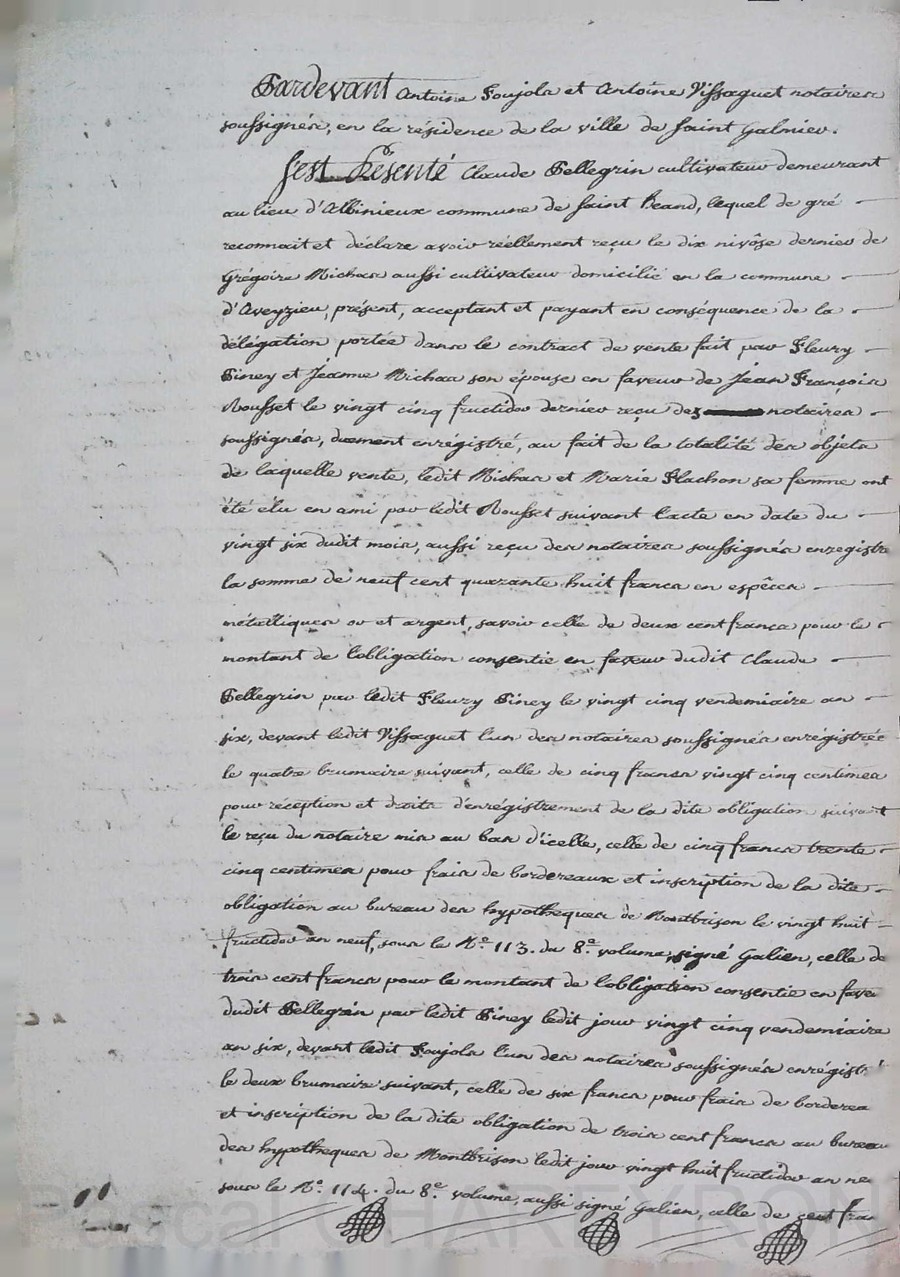 Pardevant Antoine Soujola et Antoine Vissaguet notaires
soussignés, en la résidence de la ville de Saint Galmier.
S'est Présenté Claude Pellegrin cultivateur demeurant
au lieu d'Albinieux commune de Saint Heand, lequel de gré
reconnait et déclare avoir réellement reçu le dix nivôse dernier de
Grégoire Michas aussi cultivateur domicilié en la commune
d'Aveyzieu, présent, acceptant et payant en conséquence de la
délégation portée dans le contract de vente fait par Fleury
Piney et Jeanne Michas son épouse en faveur de Jean François
Rousset le vingt cinq fructidor dernier reçu des notaires
soussignés, duement enregistré, au fait de la totalité des objets
de laquelle vente, ledit Michas et Marie Flachon sa femme ont
été élu en ami par ledit Rousset suivant l'acte en date du
vingt six dudit mois, aussi reçu des notaires soussignés enregistré
la somme de neuf cent quarante huit francs en espèces
métalliques or et argent, savoir celle de deux cent francs pour le
montant de l'obligation consentie en faveur dudit Claude
Pellegrin par ledit Fleury Piney le vingt cinq vendemiaire an
six, devant ledit Vissaguet l'un des notaires soussignés enregistrée
le quatre brumaire suivant, celle de cinq francs vingt cinq centimes
pour réception et droits d'enrégistrement de la dite obligation suivant
le reçu du notaire mis au bas d'icelle, celle de cinq francs trente
cinq centimes pour frais de bordereaux et inscription de la dite
obligation au bureau des hypotheques de Montbrison le vingt huit
fructidor an neuf, sous le N.° 113. du 8.e volume, signé Galien, celle de
trois cent francs pour le montant de l'obligation consentie en fave
dudit Pellegrin par ledit Piney ledit jour vingt cinq vendemiaire
an six, devant ledit Soujola l'un des notaires soussignés enrégistré
le deux brumaire suivant, celle de six francs pour frais de borderea
et inscription de la dite obligation de trois cent francs au bureau
des hypotheques de Montbrison ledit jour vingt huit fructidor an ne
sous le N.° 114. du 8.e volume, aussi signé Galien, celle de cent fran
Pascal CHAREYRON